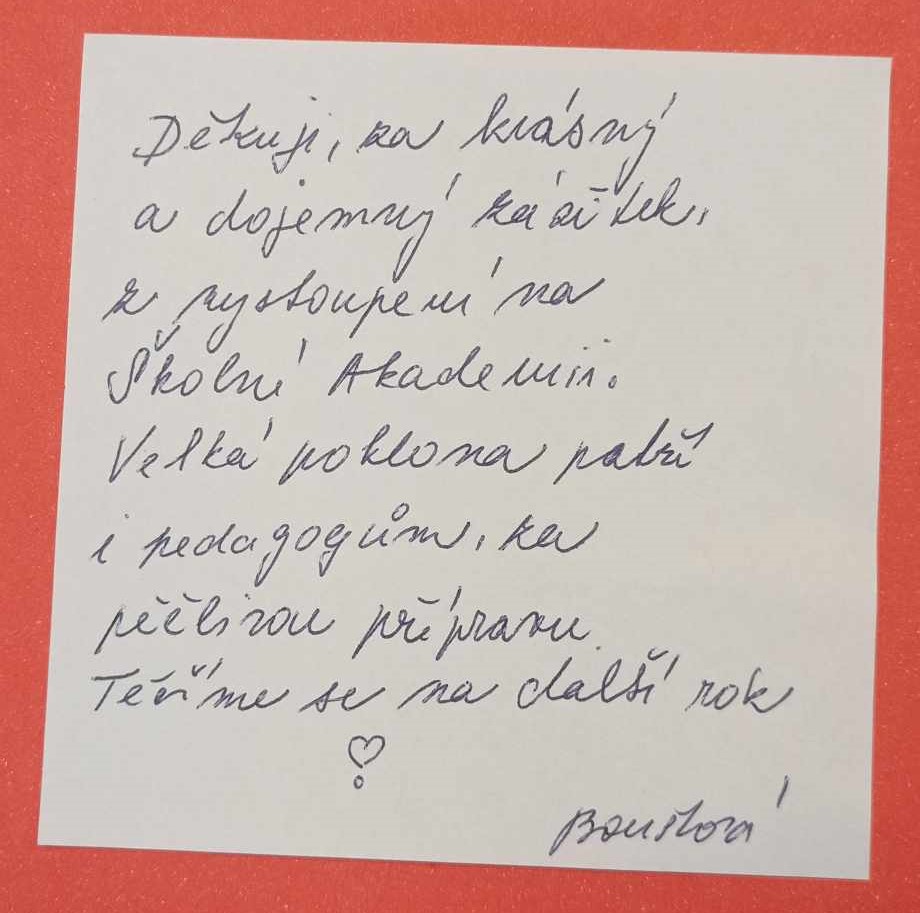 Děkuji, za krásný
a dojemný zážitek,
z vystoupení na
Školní Akademii.
Velká poklona patří
i pedagogům, za
péčlivou přípravu
Těšíme se na další rok